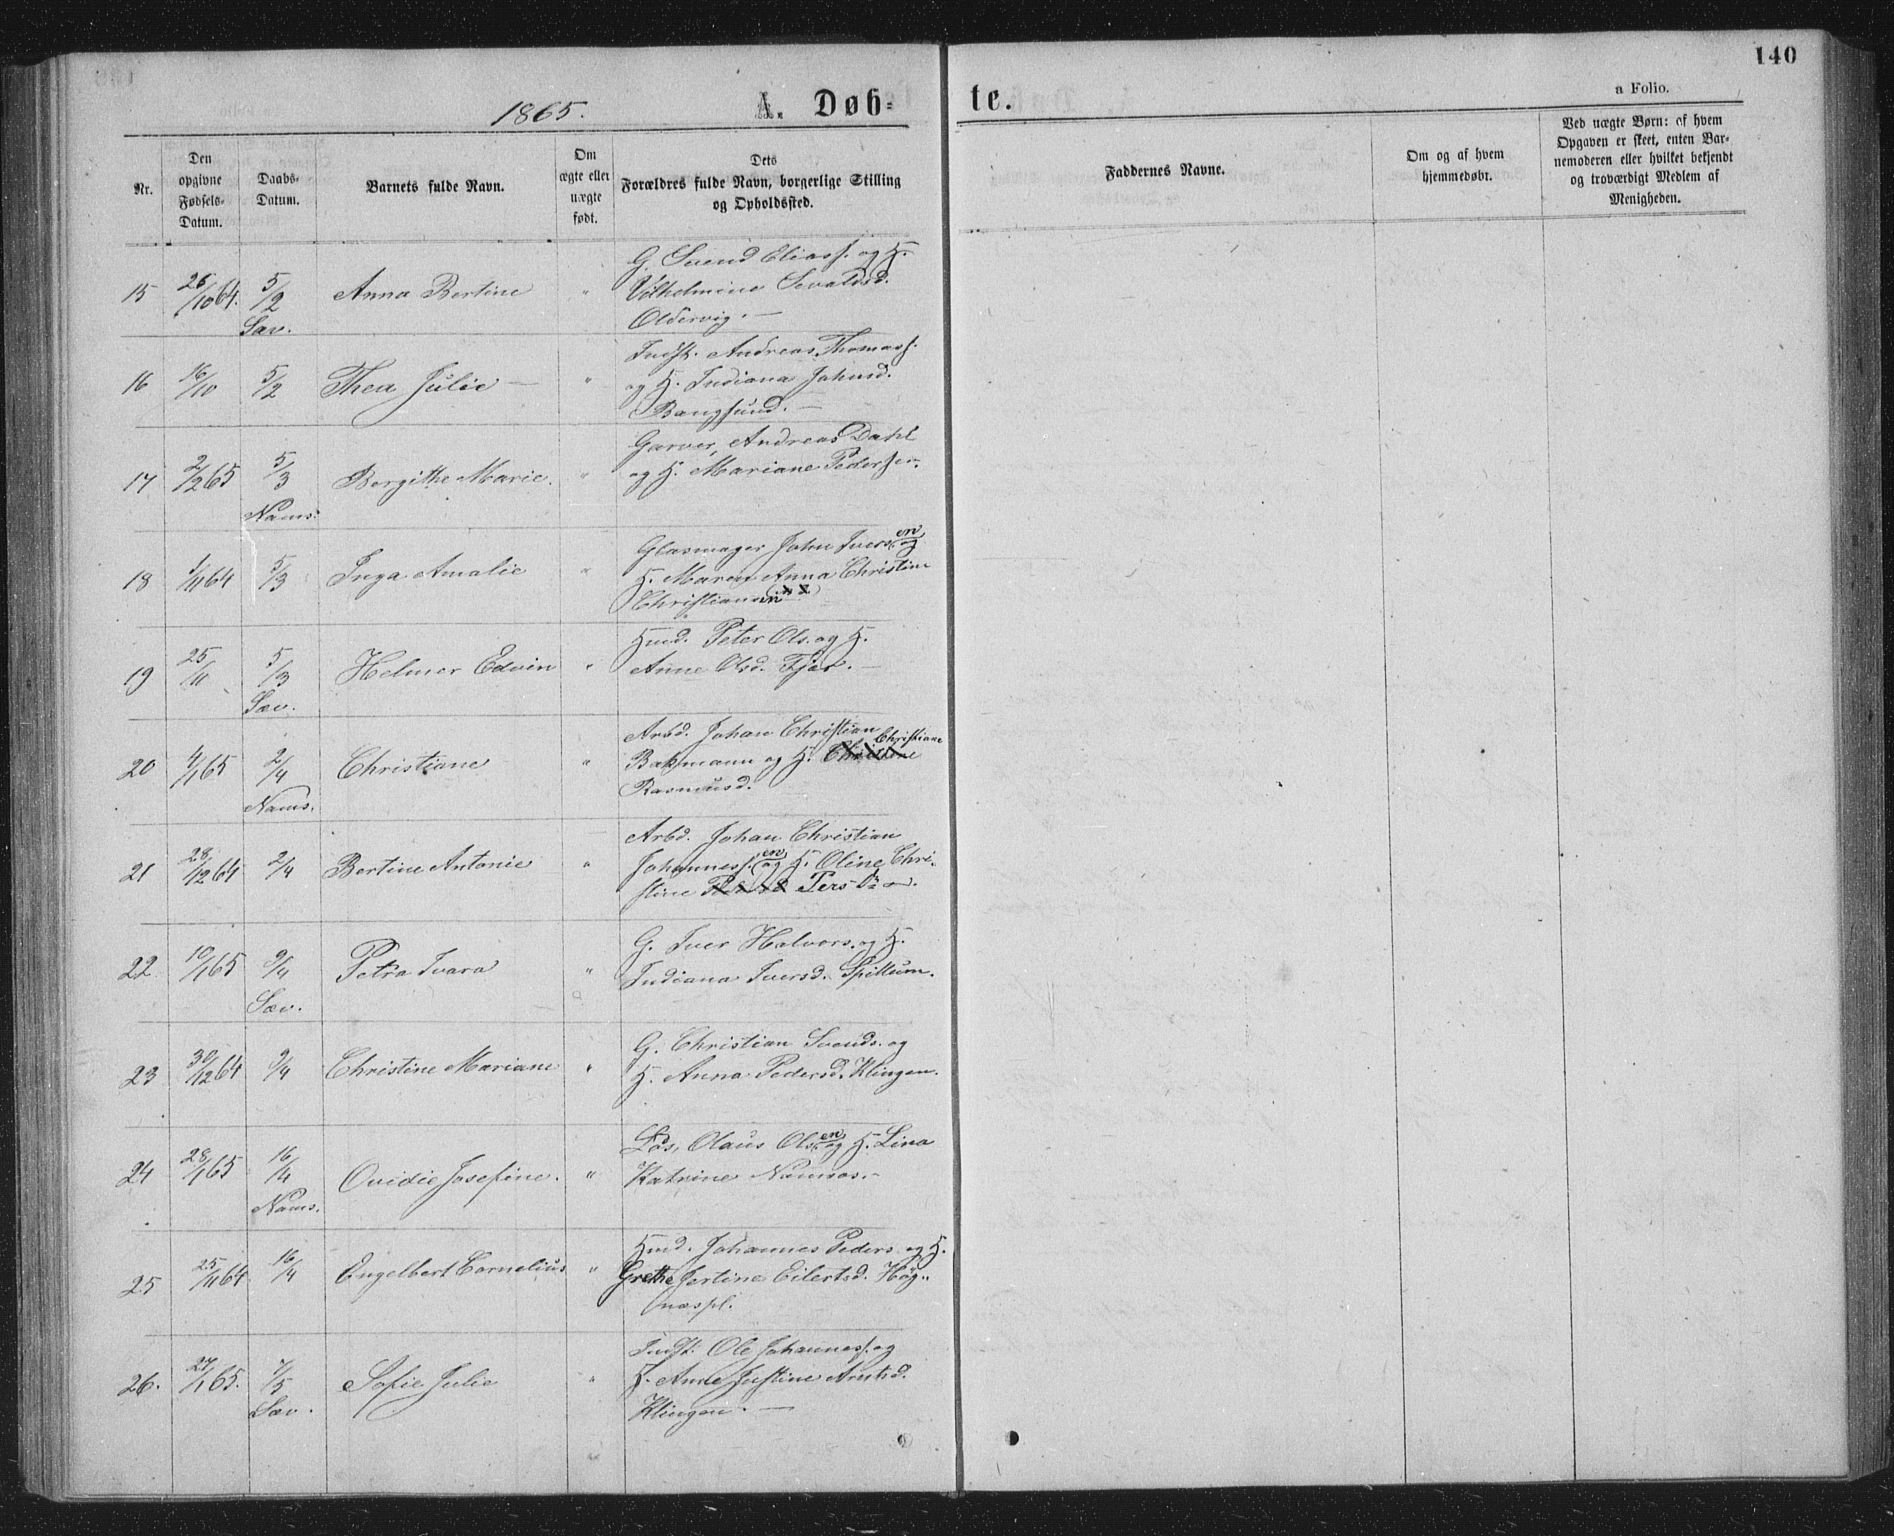 140
a Folio.
1865.
A. Døb-
te.
Nr.
Den
opgivne
Fødsels-
Datum.
Daabs-
Datum.
Barnets fulde Navn.
Om
ægte eller
uægte
født.
Dets
Forældres fulde Navn, borgerlige Stilling
og Opholdssted.
Faddernes Navne.
Om og af hvem
hjemmedøbt.
Ved uægte Børn: af hvem
Opgaven er skeet, enten Bar-
nemoderen eller hvilket bekjendt
og troværdigt Medlem af
Menigheden.
15 26/10 64. 5/2 Sæv. Anna Bertine "
G. Svend Eliass. og H.
Vilhelmine Sevaldsd.
Oldervig. —
16 16/10 5/2 Thea Julie — "
Indst. Andreas Thomass.
og H. Indiana Johnsd.
Bangsund. —
17 2/2 65 5/3 Nams. Bergithe Marie. "
Garver, Andreas Dahl
og H. Mariane Pedersen.
18 1/11 64 5/3 Inga Amalie "
Glasmager John Iversen og
H. Maren Anna Christine
Christiansen
19 25/11 5/3 Sæv. Helmer Edvin "
Husd. Peter Ols. og H.
Anne Olsd. Fjær. —
20 4/1 65 2/4 Nams. Christiane "
Arbd. Johan Christian
Bakmann og H. Christine Christiane
Rasmusd.
21 28/12 64 2/4 Bertine Antonie "
Arbd. Johan Christian
Johannessen og H. Oline Chri-
stine Persd.
22. 10/1 65 9/4 Sæv. Petra Ivara "
G. Iver Halvors. og H.
Indiana Iversd. Spillum.
23 30/12 64 9/4 Christine Mariane "
G. Christian Svends. og
H. Anna Pedersd. Klingen.
24 28/1 65 16/4 Nams. Ovidie Josefine. "
Lods, Olaus Olsen og H. Lina
Katrine Namsos. -
25 25/11 64 16/4 Engelbert Cornelius "
Husd. Johannes Peders. og H.
Grethe Jertine Eilertsd. Høg-
næspl.
26. 27/1 65. 7/5 Sæv. Sofie Julie "
Indst. Ole Johanness. og
H. Anne Justine Arntsd.
Klingen. —